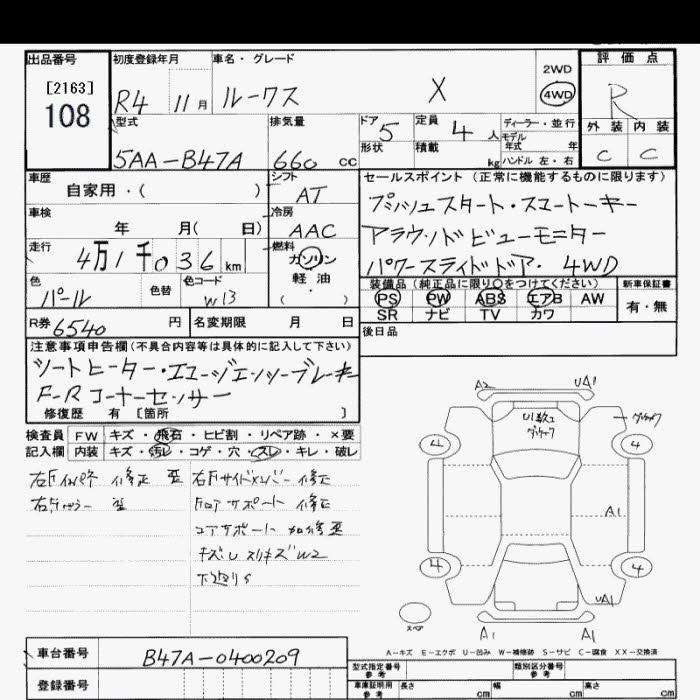 出品番号
[2163]
108
初度登録年月
R4 11月
車名・グレード
ルークス X
2WD
4WD
評価点
R
外装 内装
C C
型式
5AA-B47A
排気量
660 cc
ドア
5
定員
4 人
形状
積載
kg
ディーラー・並行
モデル
年式 年
ハンドル 左・右
車歴
自家用・( )
シフト
AT
車検
年 月( 日)
冷房
AAC
走行
4万1千036km
燃料
ガソリン
軽油
( ・ )
色
パール
色替
色コード
W13
R券
6540 円
名変期限 月 日
セールスポイント (正常に機能するものに限ります)
プッシュスタート・スマートキー
アラウンドビューモニター
パワースライドドア・4WD
装備品(純正品に限り○をつけてください)
PS PW ABS エアB AW
SR ナビ TV カワ
新車保証書
有・無
後日品
注意事項申告欄(不具合内容等は具体的に記入して下さい)
シートヒーター・エマージェンシーブレーキ
F-Rコーナーセンサー
修復歴 有 [箇所 ]
検査員
記入欄
FW キズ・飛石・ヒビ割・リペア跡・×要
内装 キズ・汚レ・コゲ・穴・スレ・キレ・破レ
修正 歪
右Fピラー 歪
右Fサイドメンバー 修正
フロアサポート 修正
コアサポート 加修歪
キズUスリキズW2
下廻りS
A2
UA1
U1数コ
4
4
A1
4
4
UA1
スペア
A1
A1
A-キズ E-エクボ U-凹み W-補修跡 S-サビ C-腐食 XX-交換済
車台番号
B47A-0400209
登録番号
型式指定番号
参考
類別区分番号
参考
車庫証明用
参考
長さ cm
幅 cm
高さ cm